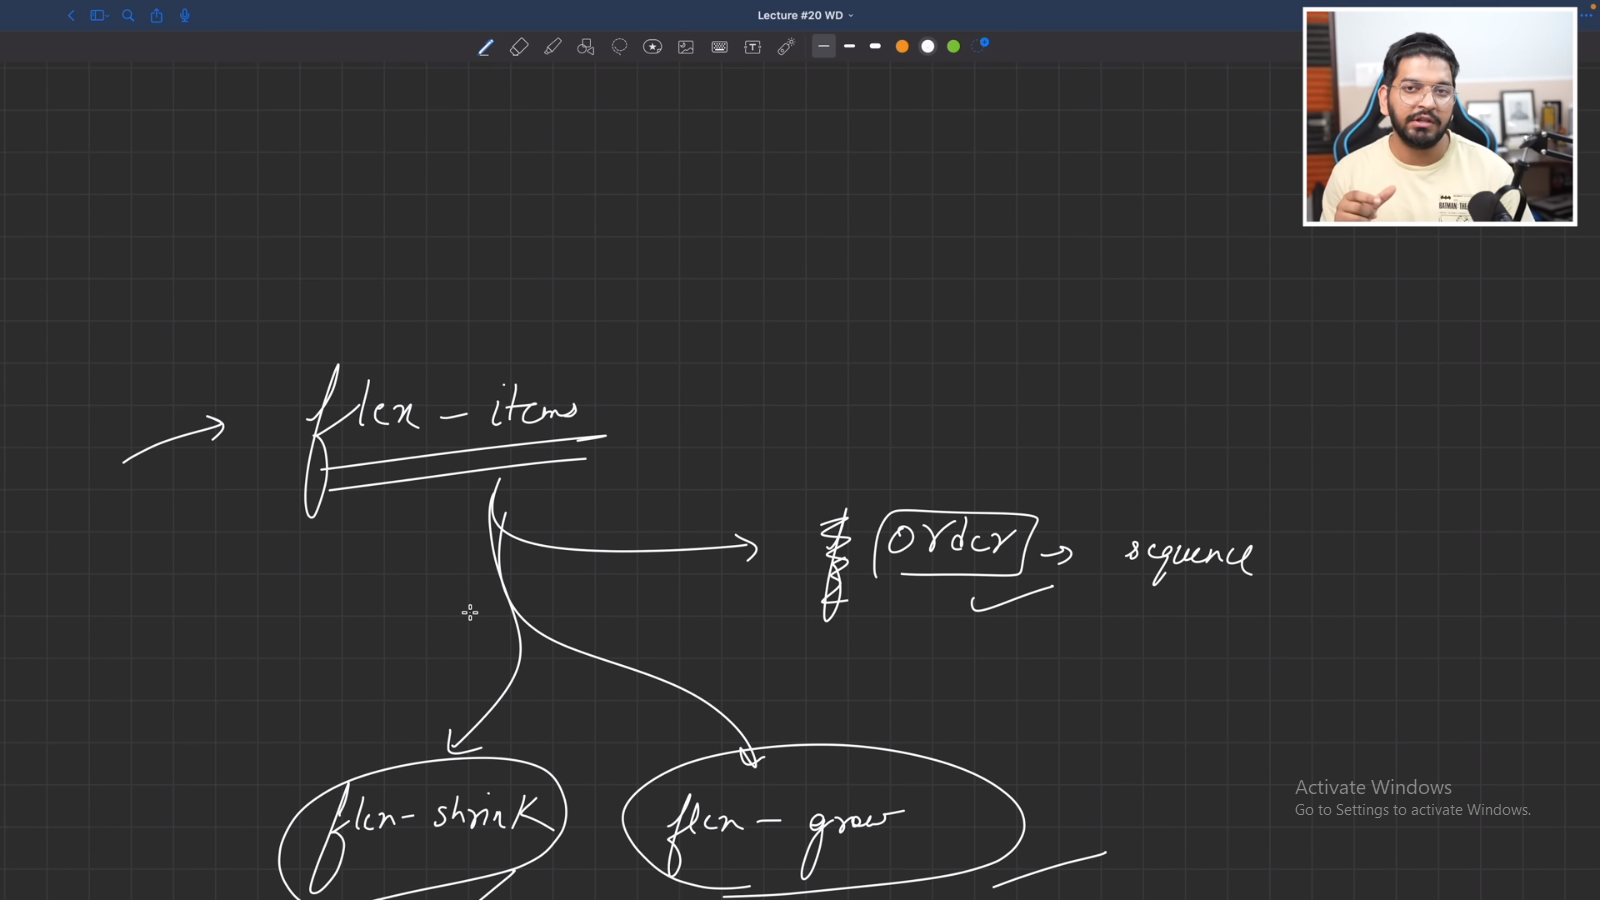 Lecture #20 WD
BATMAN THE
flex - items
order → sequence
flex - shrink
flex - grow
Activate Windows
Go to Settings to activate Windows.